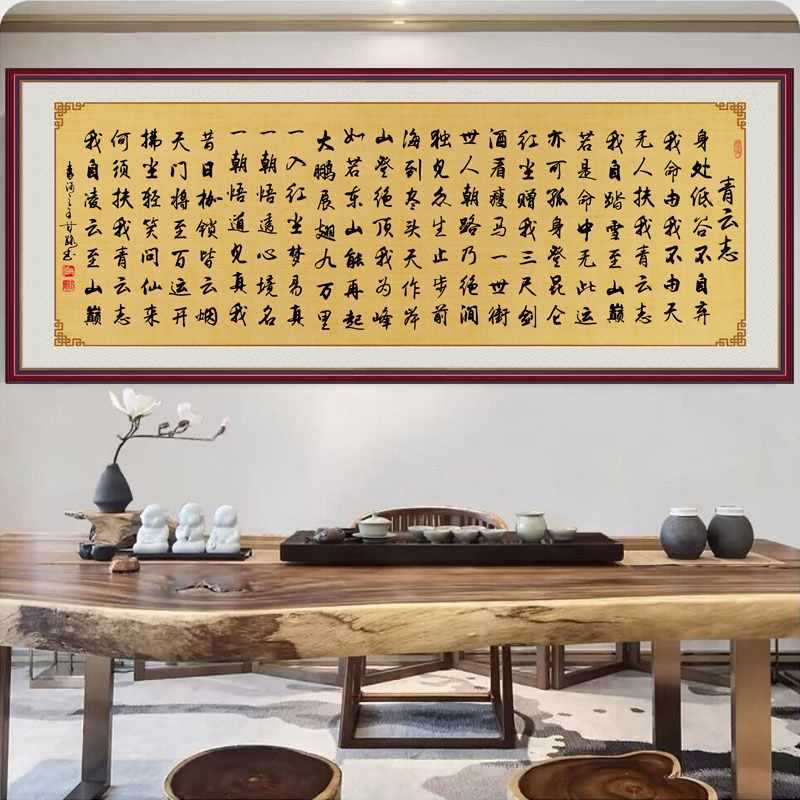 青云志
身处低谷不自弃
我命由我不由天
无人扶我青云志
我自踏雪至山巅
若是命中无此运
亦可孤身登昆仑
红尘赠我三尺剑
酒看瘦马一世街
世人朝路乃绝涧
独见众生止步前
海到尽头天作岸
山登绝顶我为峰
如若东山能再起
大鹏展翅九万里
一入红尘梦易真
一朝悟透心境名
一朝悟道见真我
昔日枷锁皆云烟
天门将至百运开
拂尘轻笑问仙来
何须扶我青云志
我自凌云至山巅